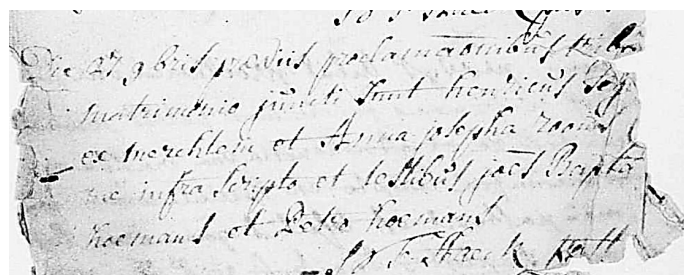 Die 27 9bris prævijs proclamaōnibus tribus
matrimonio juncti sunt henricus
ex merchtem et Anna josepha rooms
me infra scripto et testibus joēs Bapta
hoemans et Petro hoemans